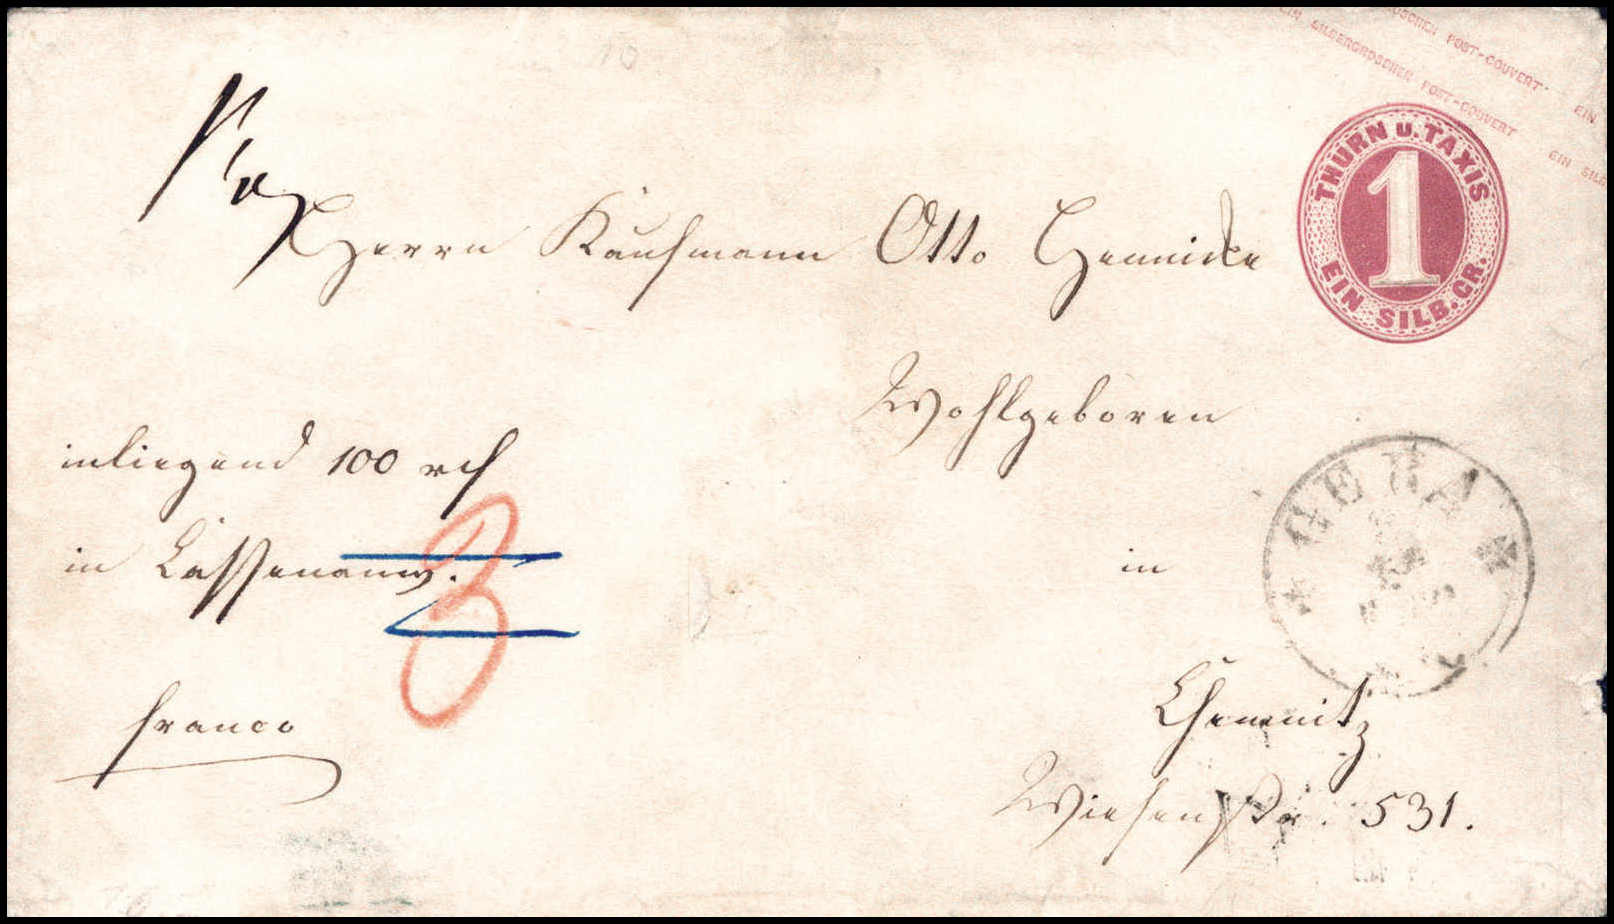 GROSCHEN POST-COUVERT · EIN
EIN SILBERGROSCHEN POST-COUVERT EIN SILB
THURN u. TAXIS
1
EIN SILB. GR.
Herrn Kaufmann Otto Hennicke
Wohlgeboren
inliegend 100 rth
in Cassenanw.
3
in
GERA
franco
Chemnitz
Wiesenstr. 531.